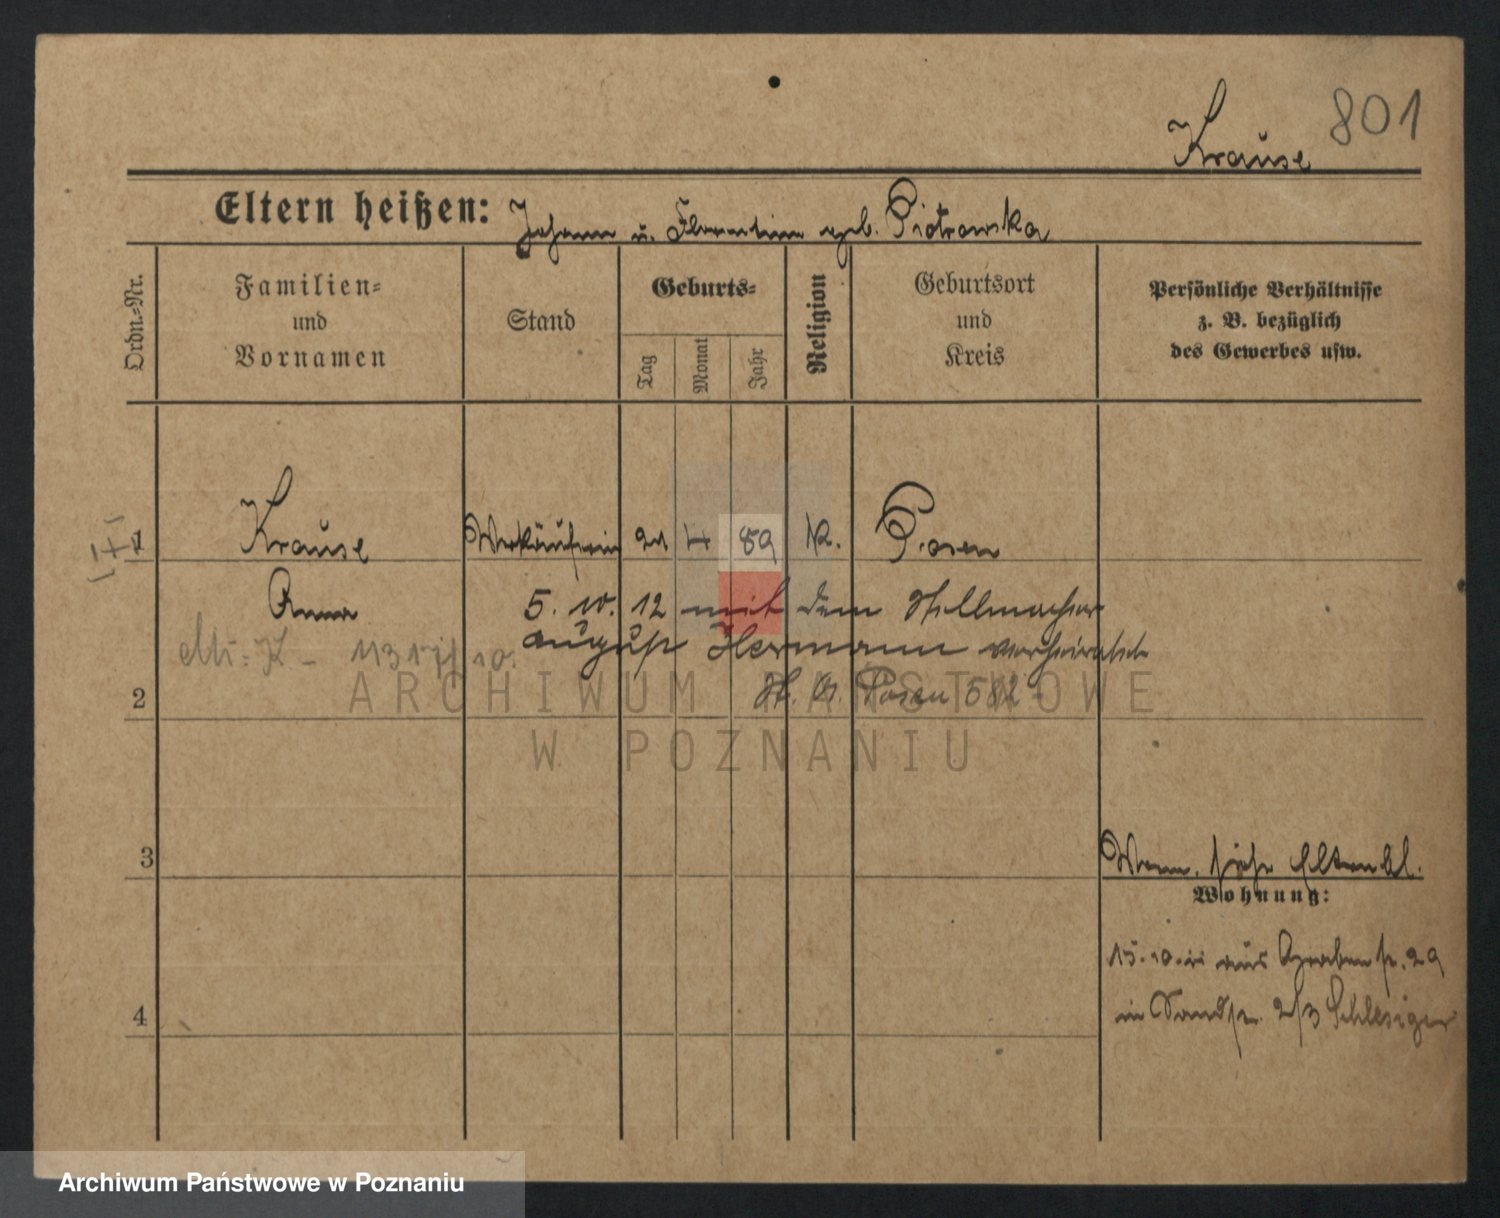 801
Krause
Eltern heißen: Johann u. Florentine geb. Piotrowska
Ordn.-Nr.
Familien-
und
Vornamen
Stand
Geburts-
Tag
Monat
Jahr
Religion
Geburtsort
und
Kreis
Persönliche Verhältnisse
z. B. bezüglich
des Gewerbes usw.
1 Krause Verkäuferin 21 4 89 K. Posen
Anna
5. 10. 12 mit dem Stellmacher
August Hermann verheiratet
St. A. Posen 582
2
ARCHIWUM PAŃSTWOWE
W POZNANIU
3
Wenn. siehe Elternbl.
Wohnung:
15.10.11 aus Grabenstr. 29
in Sandstr. 2/3 Schlesiger
4
Archiwum Państwowe w Poznaniu